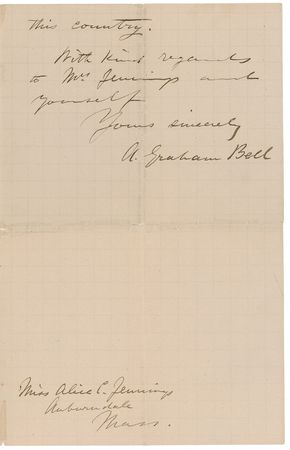 this country.
With kind regards
to Mrs Jennings and
yourself
Yours sincerely
A. Graham Bell
Miss Alice C. Jennings
Auburndale
Mass.